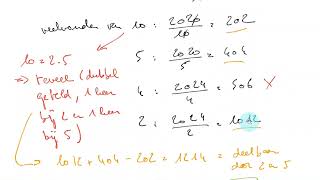 veelvouden van 10 : 2020/10 = 202
10 = 2.5
5 : 2020/5 = 404
=> teveel (dubbel
geteld, 1 keer
bij 2 en 1 keer
bij 5)
4 : 2024/4 = 506 X
2 : 2024/2 = 1012
1012 + 404 - 202 = 1214 = deelbaar
door 2 en 5